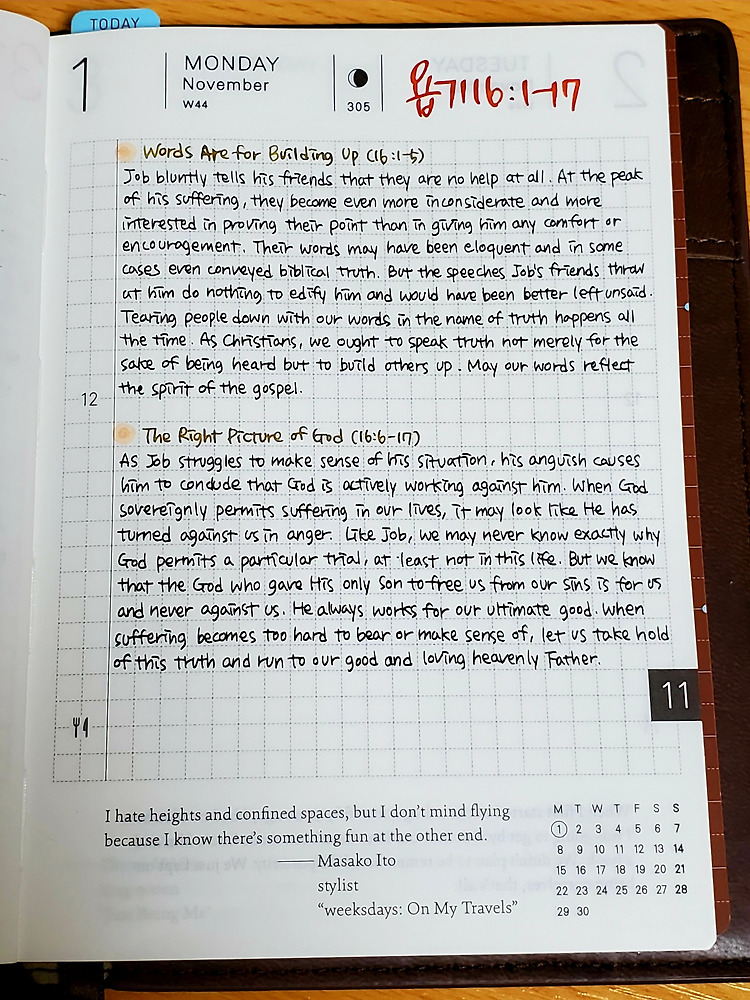 TODAY
1
MONDAY
November
W44
305
욥기 16:1-17
Words Are for Building Up (16:1-5)
Job bluntly tells his friends that they are no help at all. At the peak
of his suffering, they become even more inconsiderate and more
interested in proving their point than in giving him any comfort or
encouragement. Their words may have been eloquent and in some
cases even conveyed biblical truth. But the speeches Job's friends throw
at him do nothing to edify him and would have been better left unsaid.
Tearing people down with our words in the name of truth happens all
the time. As Christians, we ought to speak truth not merely for the
sake of being heard but to build others up. May our words reflect
the spirit of the gospel.
12
The Right Picture of God (16:6-17)
As Job struggles to make sense of his situation, his anguish causes
him to conclude that God is actively working against him. When God
sovereignly permits suffering in our lives, it may look like He has
turned against us in anger. Like Job, we may never know exactly why
God permits a particular trial, at least not in this life. But we know
that the God who gave His only Son to free us from our sins is for us
and never against us. He always works for our ultimate good. When
suffering becomes too hard to bear or make sense of, let us take hold
of this truth and run to our good and loving heavenly Father.
11
I hate heights and confined spaces, but I don't mind flying
because I know there's something fun at the other end.
—— Masako Ito
stylist
"weeksdays: On My Travels"
M T W T F S S
1 2 3 4 5 6 7
8 9 10 11 12 13 14
15 16 17 18 19 20 21
22 23 24 25 26 27 28
29 30